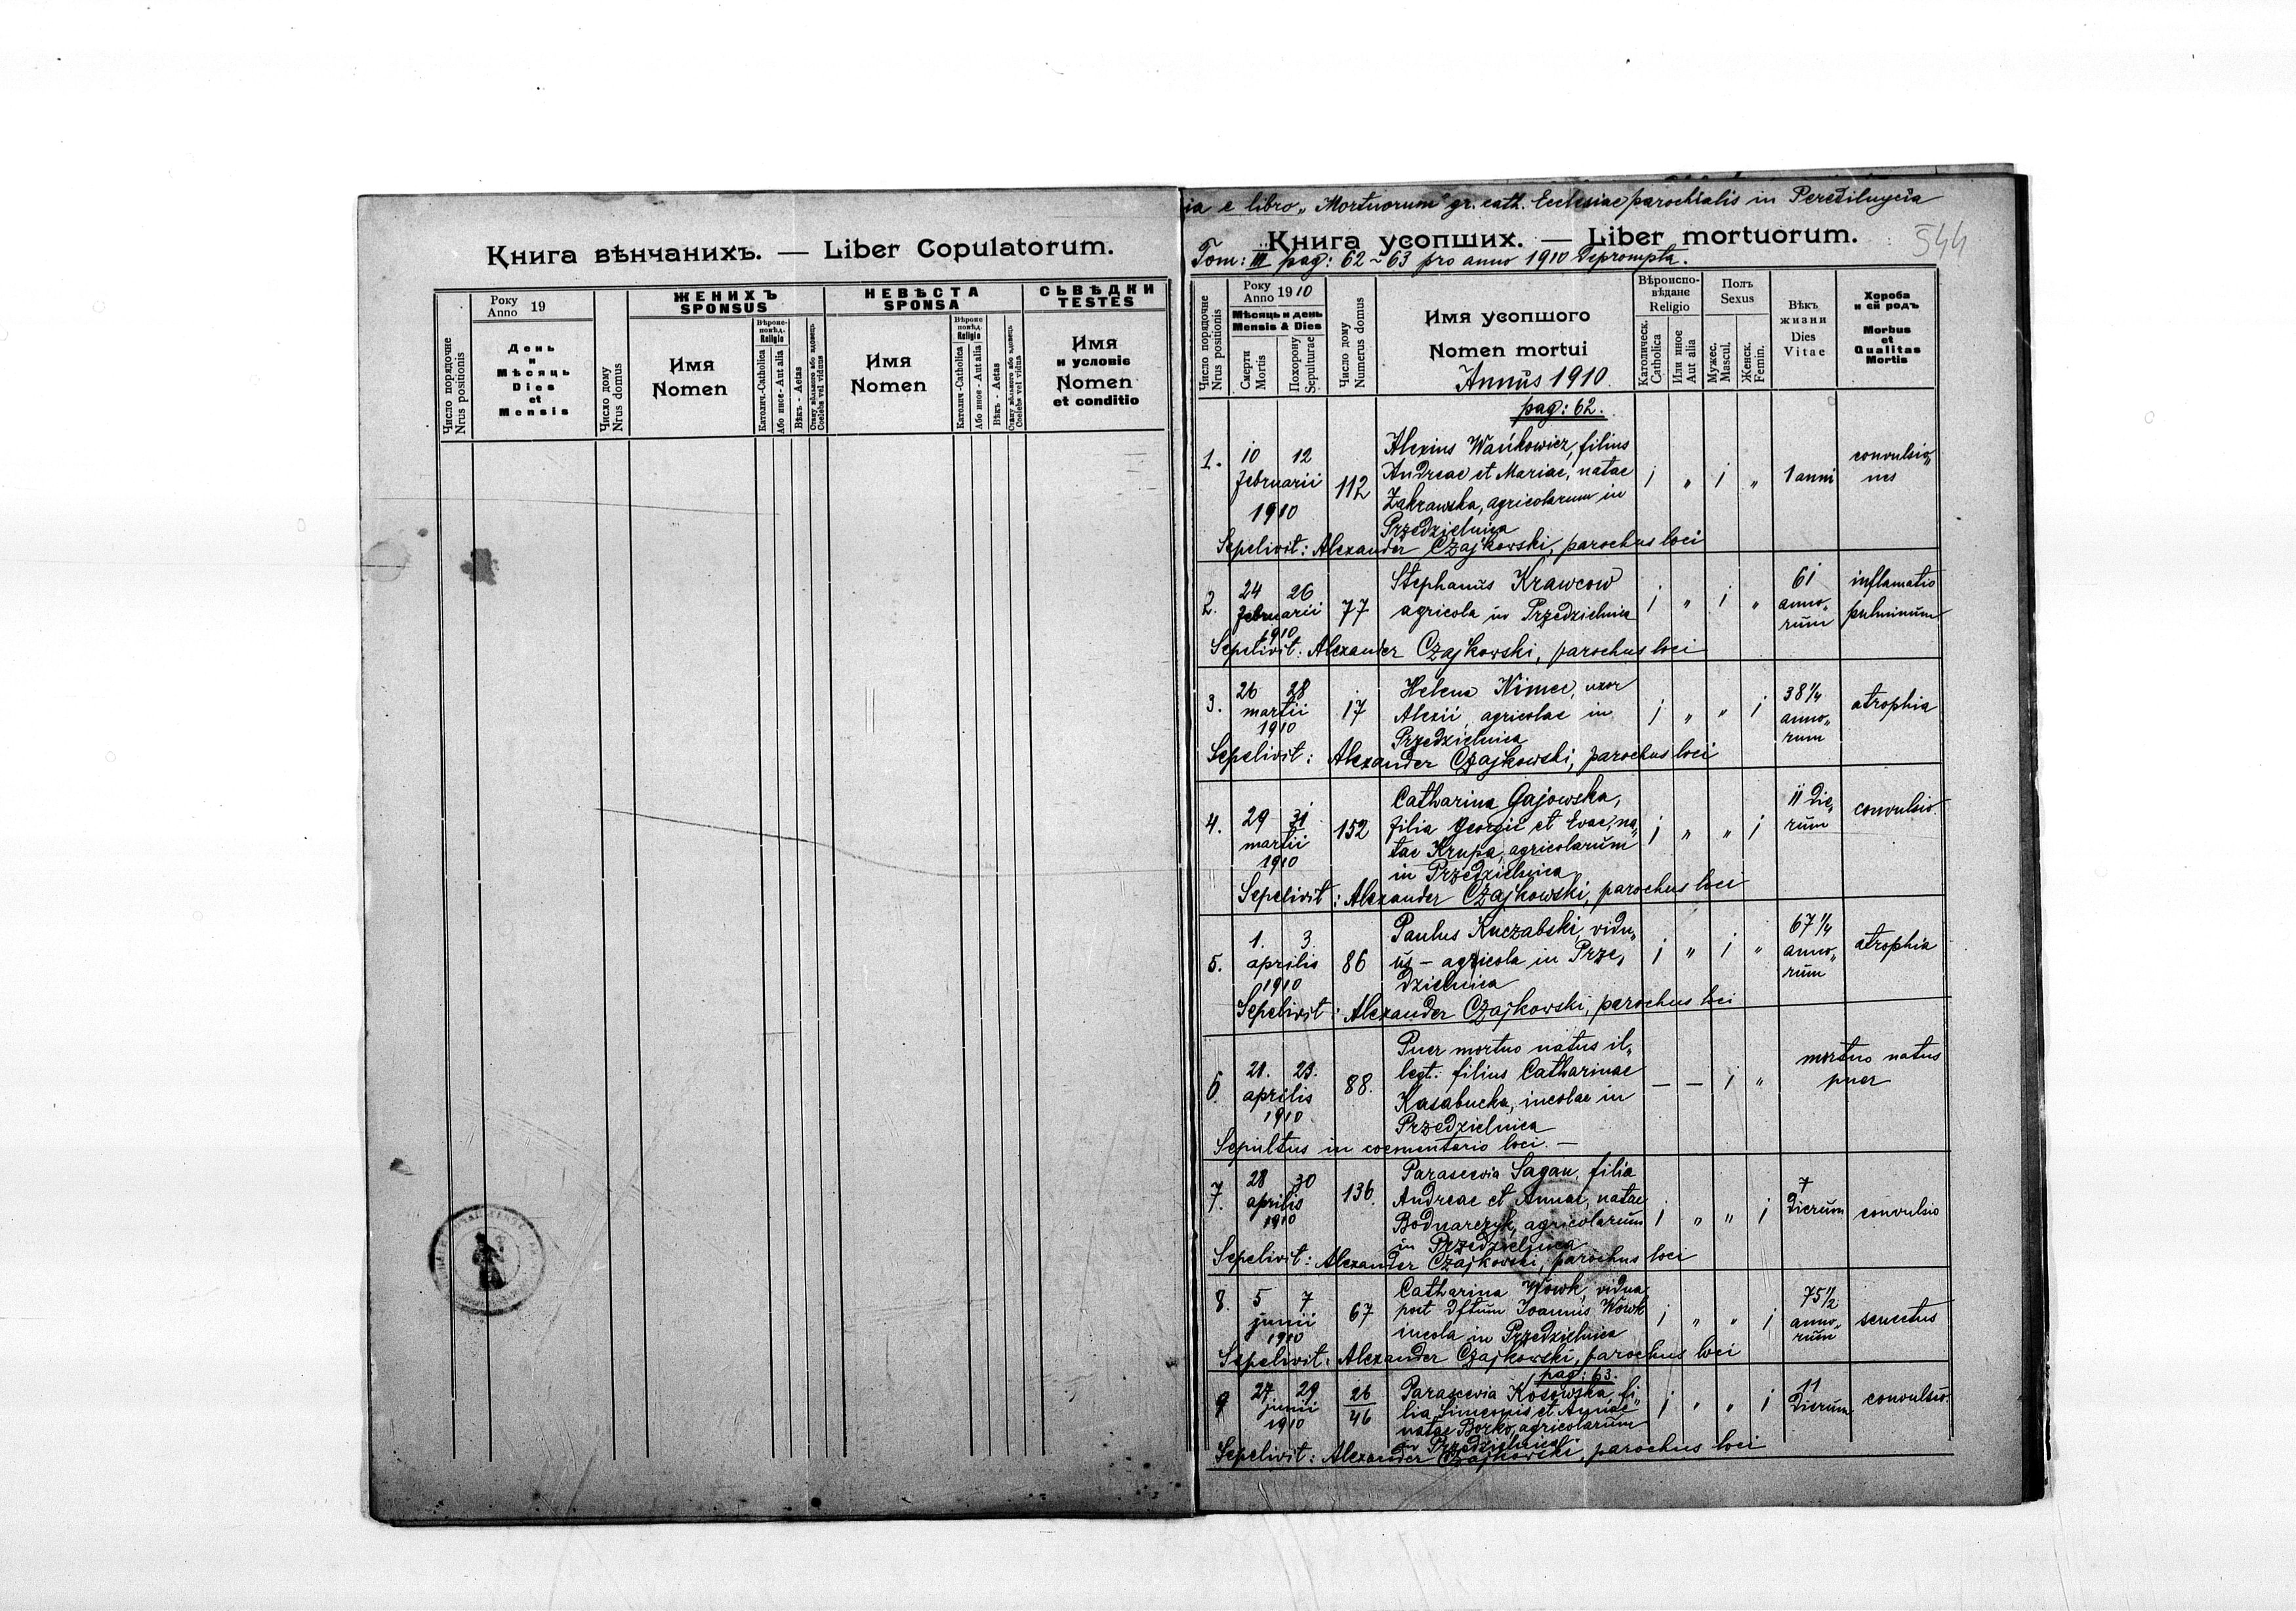 Книга вѣнчанихъ. — Liber Copulatorum.
Число порядочне
Nrus positionis
Року
Anno 19
День
и
Мѣсяць
Dies
et
Mensis
Число дому
Nrus domus
ЖЕНИХЪ
SPONSUS
Имя
Nomen
Вѣроис-
повѣд.
Religio
Католич.-Catholica
Або иное - Aut alia
Вѣкъ - Aetas
Coelebs vel viduus
НЕВѢСТА
SPONSA
Имя
Nomen
Religio
Католич -Catholica
Або иное - Aut alia
Вѣкъ - Aetas
Coelebs vel vidua
СЬВѢДКИ
TESTES
Имя
и условіе
Nomen
et conditio
ia e libro „Mortuorum" gr. cath. Ecclesiae parochialis in
Книга усопших. — Liber mortuorum.
544
Tom: III pag: 62-63 pro anno 1910 deprompta.
Число порядочне
Nrus positionis
Року
Anno 1910
Мѣсяць и день
Mensis & Dies
Смерти
Mortis
Похорону
Sepulturae
Число дому
Numerus domus
Имя усопшого
Nomen mortui
Annus 1910
Вѣроиспо-
вѣдане
Religio
Католическ.
Catholica
Или иное
Aut alia
Полъ
Sexus
Мужес.
Mascul.
Женск.
Femin.
Вѣкъ
жизни
Dies
Vitae
Хороба
и єй родъ
Morbus
et
Qualitas
Mortis
pag: 62.
1. 10 12 Februarii 1910 112
Alexius Wańkowicz, filius
Andreae et Mariae, natae
Zakrawska, agricolarum in
Przedzielnica
1 „ 1 „ 1 anni convulsio„
nes
Sepelivit: Alexander Czajkowski, parochus loci
2. 24 26 Februarii 1910 77
Stephanus Krawcow
agricola in Przedzielnica
1 „ 1 „ 61 anno„
rum
inflamatio
pulminum
Sepelivit: Alexander Czajkowski, parochus loci
3. 26 28 martii 1910 17
Helena Nimec, uxor
Alexii, agricolae in
Przedzielnica
1 „ „ 1 38 1/4 anno„
rum
atrophia
Sepelivit: Alexander Czajkowski, parochus loci
4. 29 31 martii 1910 152
Catharina Gajowska,
filia Georgii et Evae, na„
tae Krupa, agricolarum
in Przedzielnica
1 „ „ 1 11 die„
rum
convulsio
Sepelivit: Alexander Czajkowski, parochus loci
5. 1. 3. aprilis 1910 86
Paulus Kuczabski, vidu„
us - agricola in Prze„
dzielnica
1 „ 1 „ 67 1/4 anno„
rum
atrophia
Sepelivit: Alexander Czajkowski, parochus loci
6. 21. 23. aprilis 1910 88.
Puer mortuo natus il„
legt: filius Catharinae
Kasabucka, incolae in
Przedzielnica
— — 1 „ mortuo natus
puer
Sepultus in coementerio loci. —
7. 28 30 aprilis 1910 136
Parascevia Sagan, filia
Andreae et Annae, natae
Bodnarczyk, agricolarum
in Przedzielnica
1 „ „ 1 7 dierum convulsio
Sepelivit: Alexander Czajkowski, parochus loci
8. 5 7 junii 1910 67
Catharina Wowk, vidua
post dftum Joannis Wowk
incola in Przedzielnica
1 „ „ 1 75 1/2 anno„
rum
senectus
Sepelivit: Alexander Czajkowski, parochus loci
pag: 63.
9 27 29 junii 1910 26/46
Parascevia Kosowska, fi„
lia Simeonis et Annae
natae Borko, agricolarum
in Przedzielnica
1 „ „ 1 11 dierum convulsio.
Sepelivit: Alexander Czajkowski, parochus loci